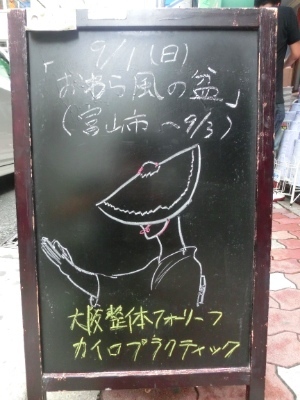 9/1(日)
「おわら風の盆」
(富山市〜9/3)
大阪整体フォーリーフ
カイロプラクティック